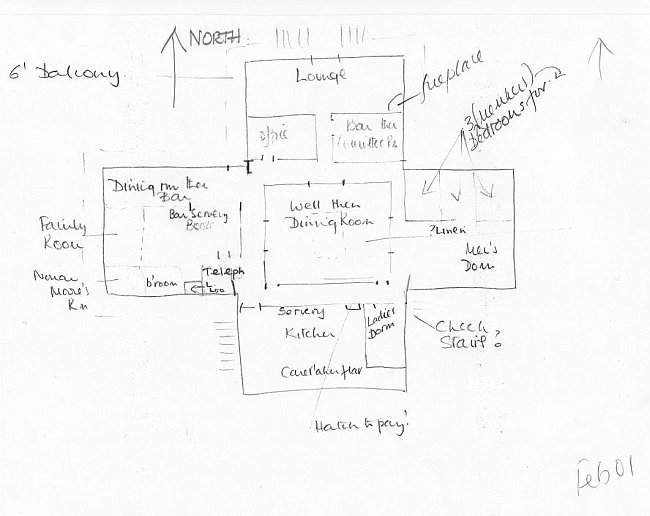 NORTH
6' Balcony
Lounge
fireplace
3 (members)
bedrooms for 2
Office
Bar then
Counter Rm
Dining rm then
Bar
Bar Servery
Family
Room
Well then
Dining Room
? Linen
Men's
Dorm
Rm
b'room
Teleph
Loo
Servery
Kitchen
Ladies
Dorm
Check
Stairs?
Caretaker flat
Hatch to pay!
Feb 01